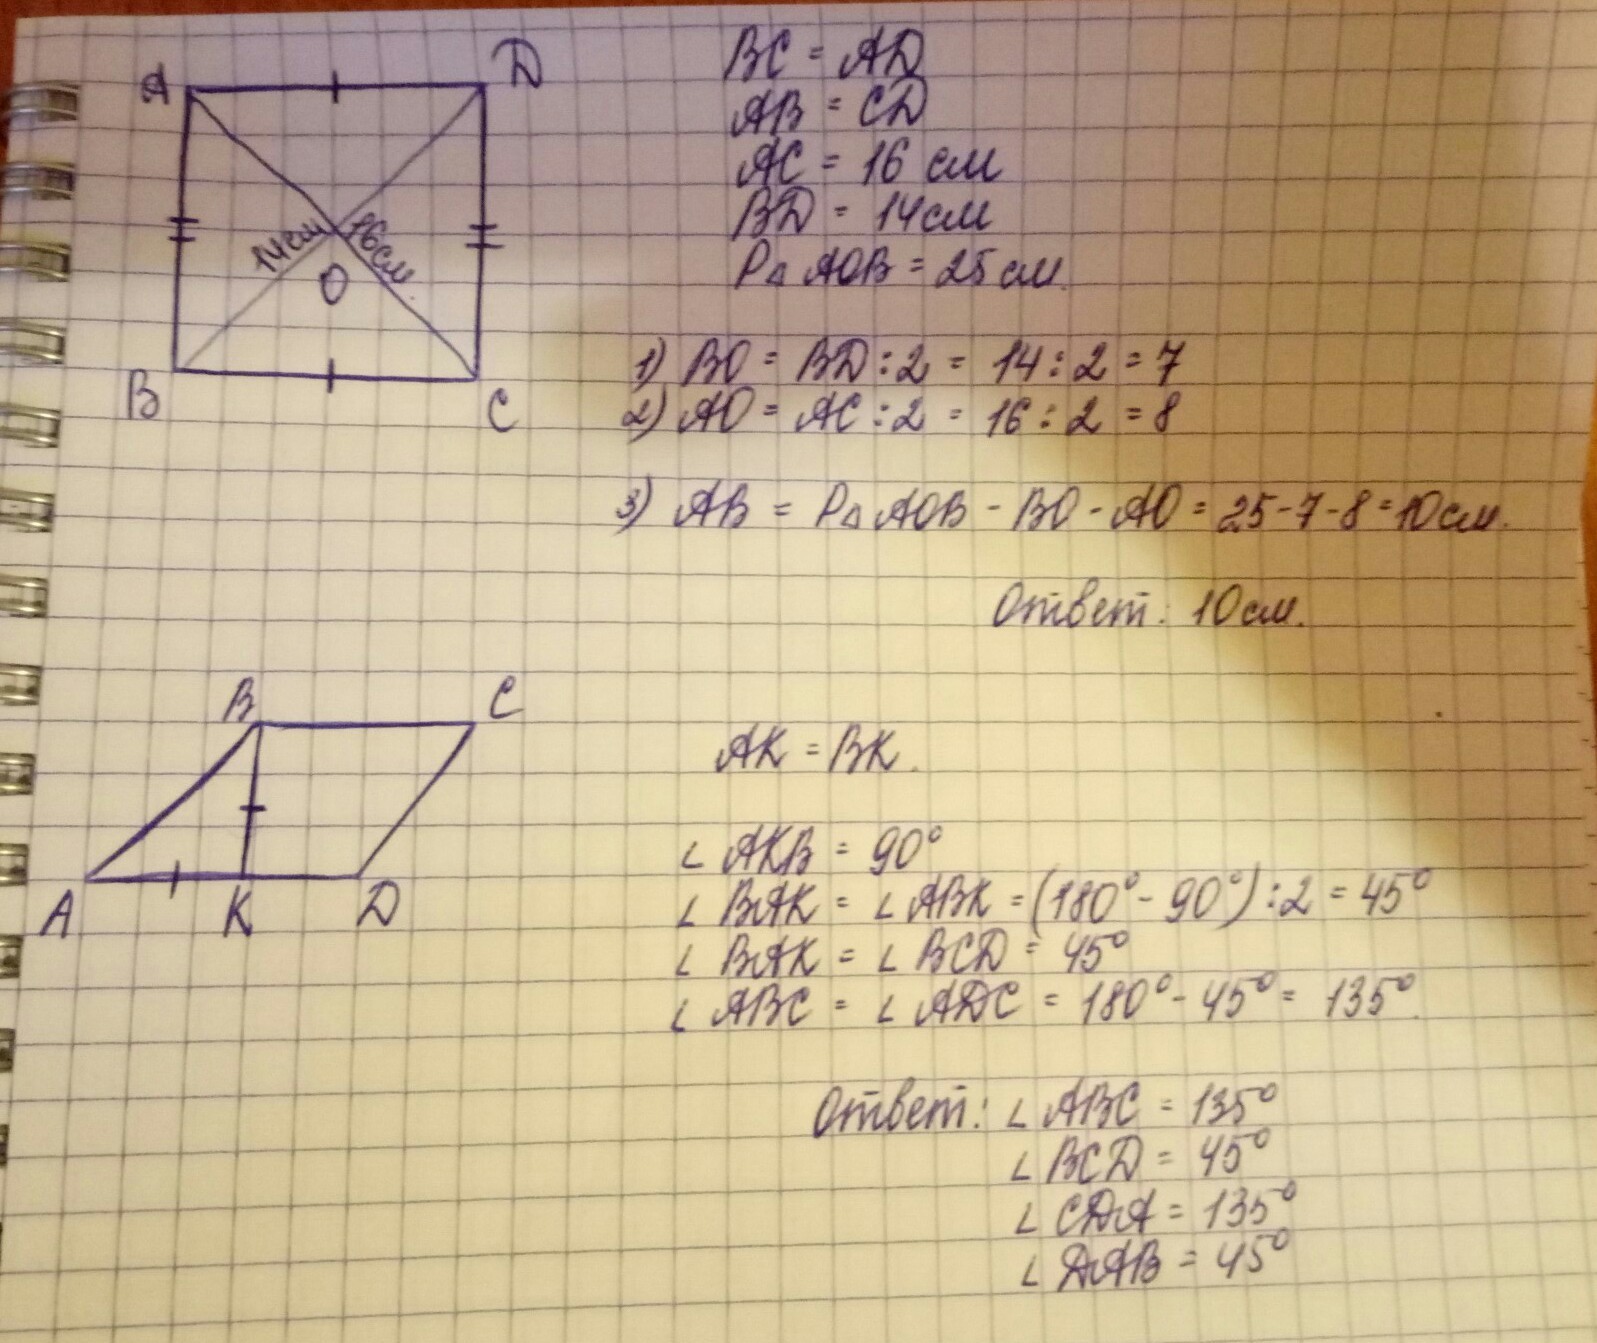 A D
14см 16см.
O
B C
BC = AD
AB = CD
AC = 16 см
BD = 14см
P△ AOB = 25см.
1) BO = BD : 2 = 14 : 2 = 7
2) AO = AC : 2 = 16 : 2 = 8
3) AB = P△ AOB - BO - AO = 25-7-8=10см.
Ответ: 10см.
B C
A K D
AK = BK.
∠ AKB = 90°
∠ BAK = ∠ ABK = (180° - 90°) : 2 = 45°
∠ BAK = ∠ BCD = 45°
∠ ABC = ∠ ADC = 180° - 45° = 135°.
Ответ: ∠ ABC = 135°
∠ BCD = 45°
∠ CDA = 135°
∠ DAB = 45°